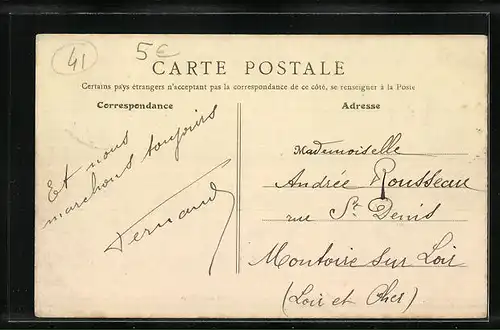 41
5€
CARTE POSTALE
Certains pays étrangers n'acceptant pas la correspondance de ce côté, se renseigner à la Poste
Correspondance
Et nous
marchons toujours
Fernand
Adresse
Mademoiselle
Andrée Rousseau
rue St Denis
Montoire sur Loir
(Loir et Cher)